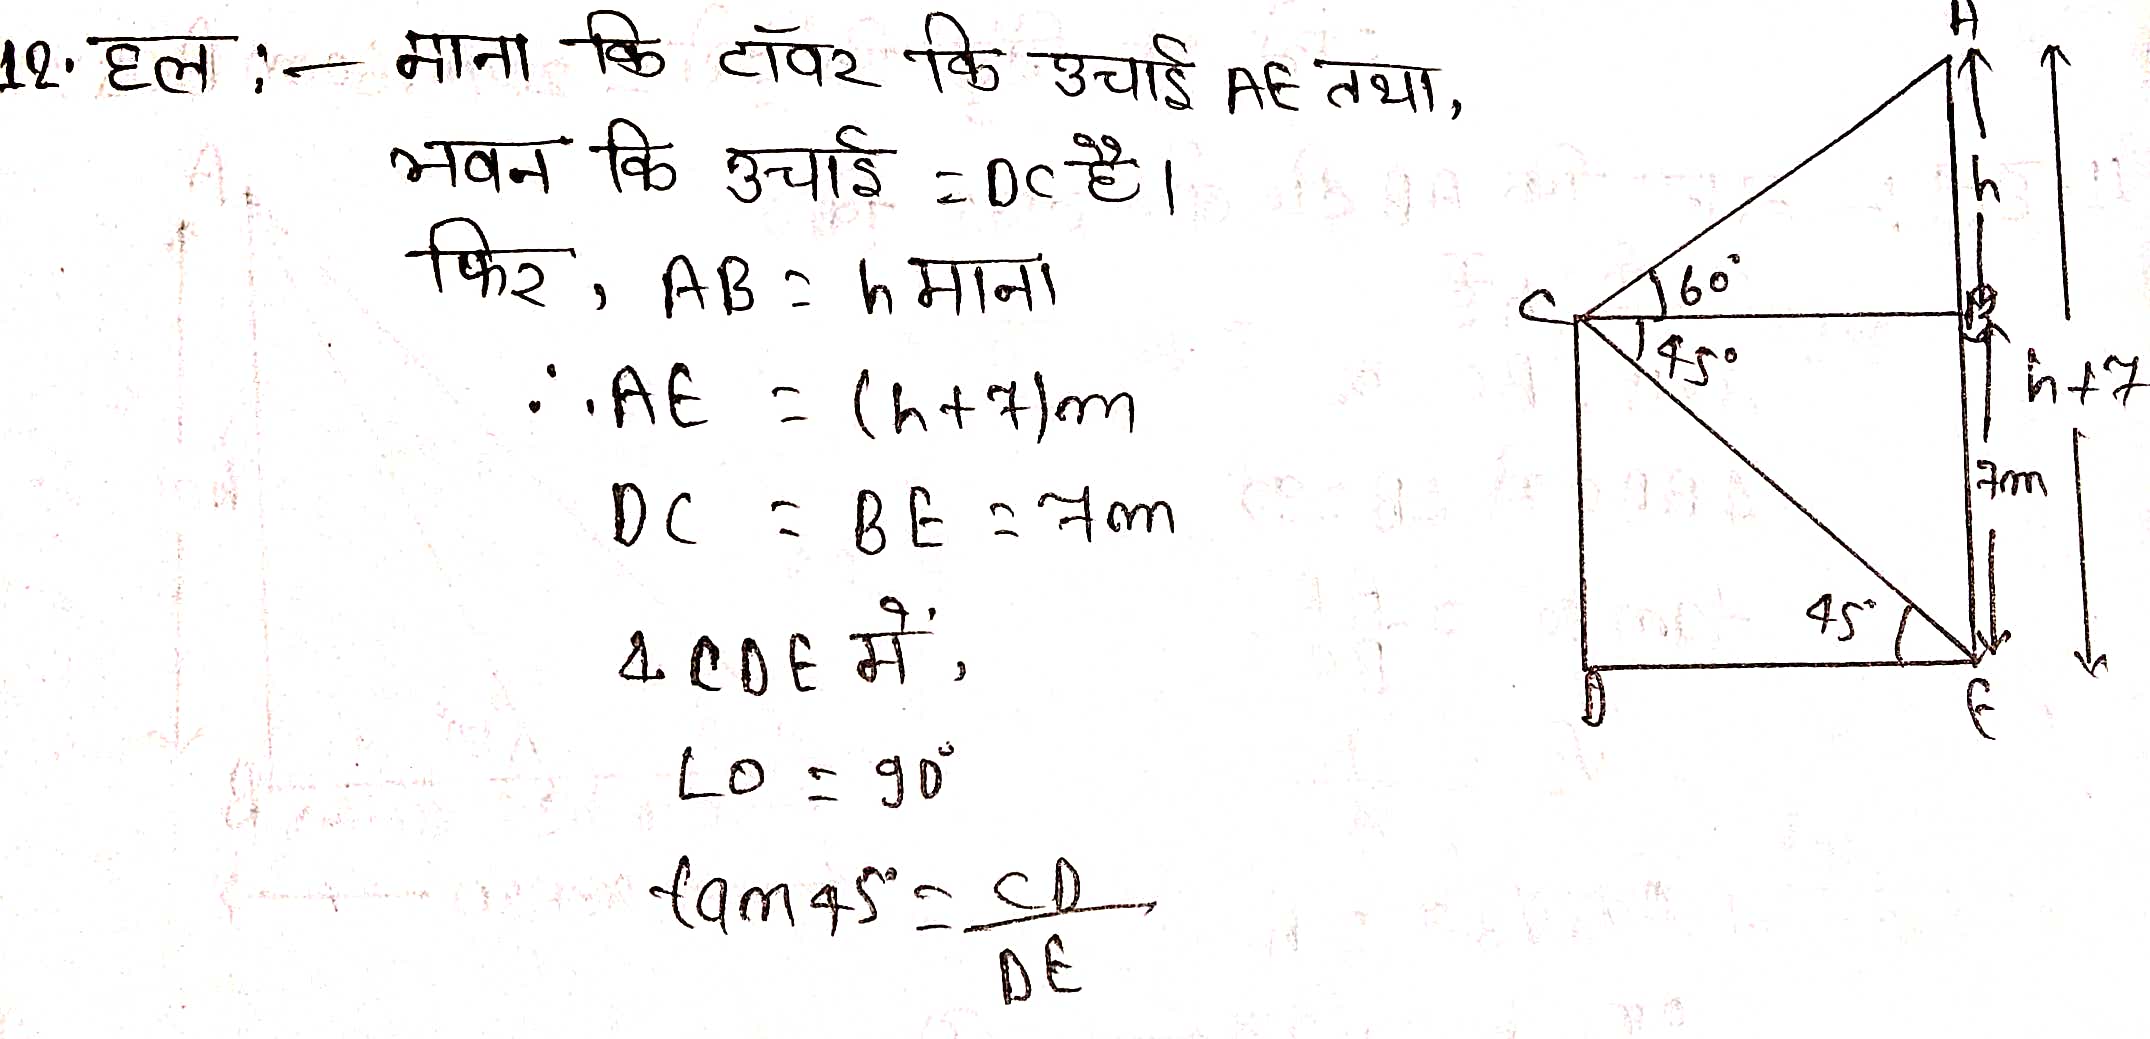 12. हल :— माना कि टॉवर कि उचाई AE तथा,
भवन कि उचाई = DC है।
फिर, AB = h माना
∴ AE = (h+7)m
DC = BE = 7m
Δ CDE में,
∠D = 90°
tan 45° = CD
DE
A
h
60°
C
B
45°
h+7
7m
45°
D
E